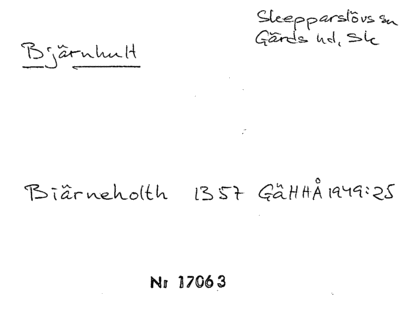 Bjärnhult
Skepparslövs sn
Gärds hd, Sk
Biärneholth 1357 GäHHÅ 1949:25
Nr 17063